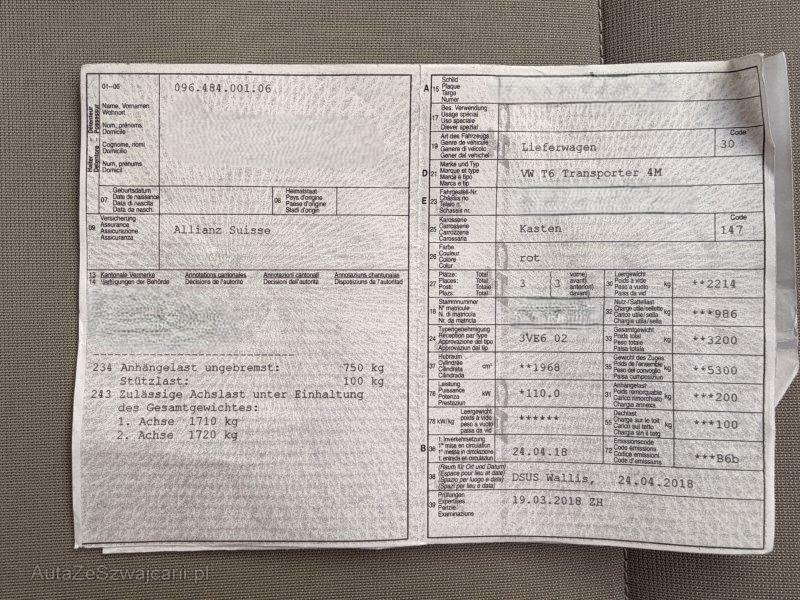 01-06
096.484.001.06
Halter Détenteur
Detentore Possessur
Name, Vornamen
Wohnort
Nom, prénoms
Domicile
Cognome, nomi
Domicilio
Num, prenums
Domicil
07 Geburtsdatum
Date de naissance
Data di nascita
Data da nasch.
08 Heimatstaat
Pays d'origine
Paese d'origine
Stadi d'origin
09 Versicherung
Assurance
Assicurazione
Assicuranza
Allianz Suisse
13 Kantonale Vermerke Annotations cantonales Annotazioni cantonali Annotaziuns chantunalas
14 Verfügungen der Behörde Décisions de l'autorité Decisioni dell'autorità Disposiziuns da l'autoritad
234 Anhängelast ungebremst: 750 kg
Stützlast: 100 kg
243 Zulässige Achslast unter Einhaltung
des Gesamtgewichtes:
1. Achse 1710 kg
2. Achse 1720 kg
A 15 Schild
Plaque
Targa
Numer
17 Bes. Verwendung
Usage spécial
Uso speciale
Diever spezial
19 Art des Fahrzeugs
Genre de véhicule
Genere di veicolo
Gener dal vehichel
Lieferwagen
Code
30
D 21 Marke und Typ
Marque et type
Marca e tipo
Marca e tip
VW T6 Transporter 4M
E 23 Fahrgestell-Nr.
Châssis no
Telaio n.
Schassis nr.
25 Karosserie
Carrosserie
Carrozzeria
Carossaria
Kasten
Code
147
26 Farbe
Couleur
Colore
Colur
rot
27 Plätze: Total
Places: Total
Posti: Totale
Plazs: Total
3
3
vorne)
avant)
anteriori)
davant)
30 Leergewicht
Poids à vide
Peso a vuoto
Paisa da vid
kg
**2214
18 Stammnummer
N° matricule
N. di matricola
Nr. da matricla
32 Nutz-/Sattellast
Charge utile/sellette
Carico utile/sella
Chargia utila/sella
kg
***986
24 Typengenehmigung
Réception par type
Approvazione del tipo
Approvaziun dal tip
3VE6 02
33 Gesamtgewicht
Poids total
Peso totale
Paisa totala
kg
**3200
37 Hubraum
Cylindrée
Cilindrata
Cilindrada
cm³
**1968
35 Gewicht des Zuges
Poids de l'ensemble
Peso del convoglio
Paisa cumposiziun
kg
**5300
76 Leistung
Puissance
Potenza
Prestaziun
kW
*110.0
31 Anhängelast
Poids remorquable
Carico rimorchiato
Chargia annexa
kg
***200
78 kW/kg
Leergewicht
poids à vide
peso a vuoto
paisa da vid
******
55 Dachlast
Charge sur le toit
Carico sul tetto
Chargia sin il tetg
kg
***100
B 36 1. Inverkehrsetzung
1re mise en circulation
1a messa in circolazione
1. entrada en circulaziun
24.04.18
72 Emissionscode
Code émissions
Codice emissioni
Code d'emissiuns
***B6b
38 (Raum für Ort und Datum)
(Espace pour lieu et date)
(Spazio per luogo e data)
(Spazi per lieu e data)
DSUS Wallis, 24.04.2018
39 Prüfungen
Expertises
Perizie
Examinaziuns
19.03.2018 ZH
AutaZeSzwajcarii.pl